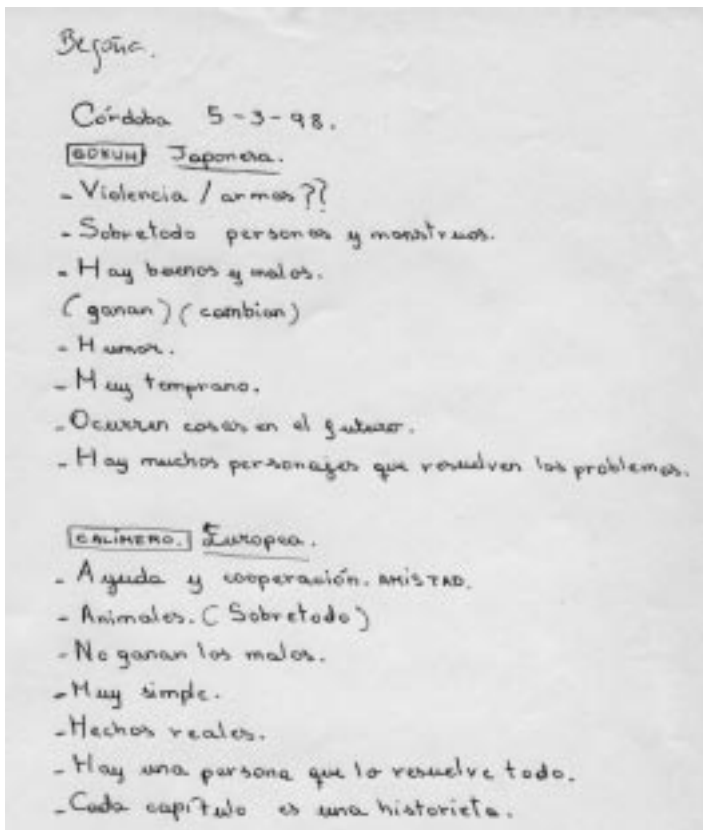 Begoña.
Córdoba 5-3-98.
GOKUH Japonesa.
- Violencia / armas??
- Sobretodo personas y monstruos.
- Hay buenos y malos.
(ganan) (cambian)
- Humor.
- Muy temprano.
- Ocurren cosas en el futuro.
- Hay muchos personajes que resuelven los problemas.
CALIMERO. Europea.
- Ayuda y cooperación. AMISTAD.
- Animales. (Sobretodo)
- No ganan los malos.
- Muy simple.
- Hechos reales.
- Hay una persona que lo resuelve todo.
- Cada capítulo es una historieta.